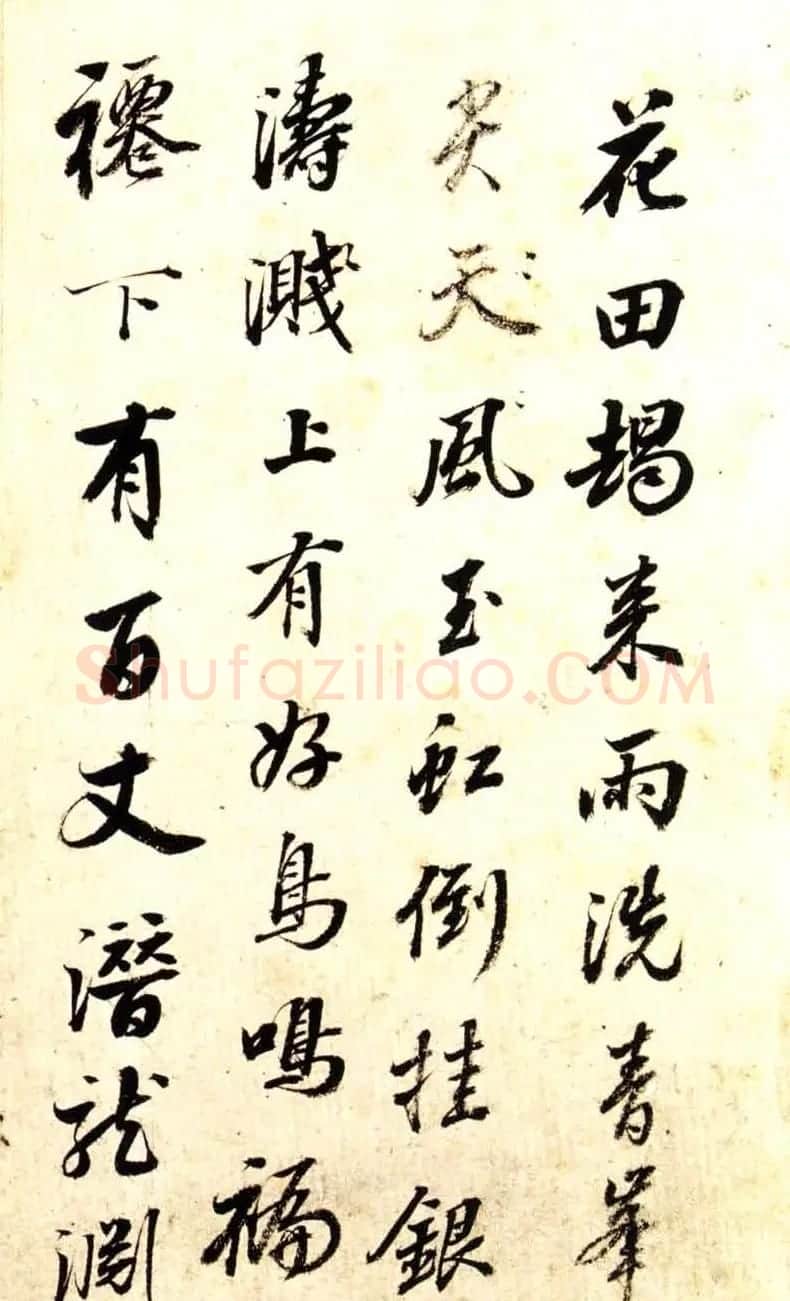 花田朅来雨洗青峯
尖天風玉虹倒挂銀
濤濺上有好鳥鳴褊
褼下有百丈潛龍淵
Shufaziliao.COM